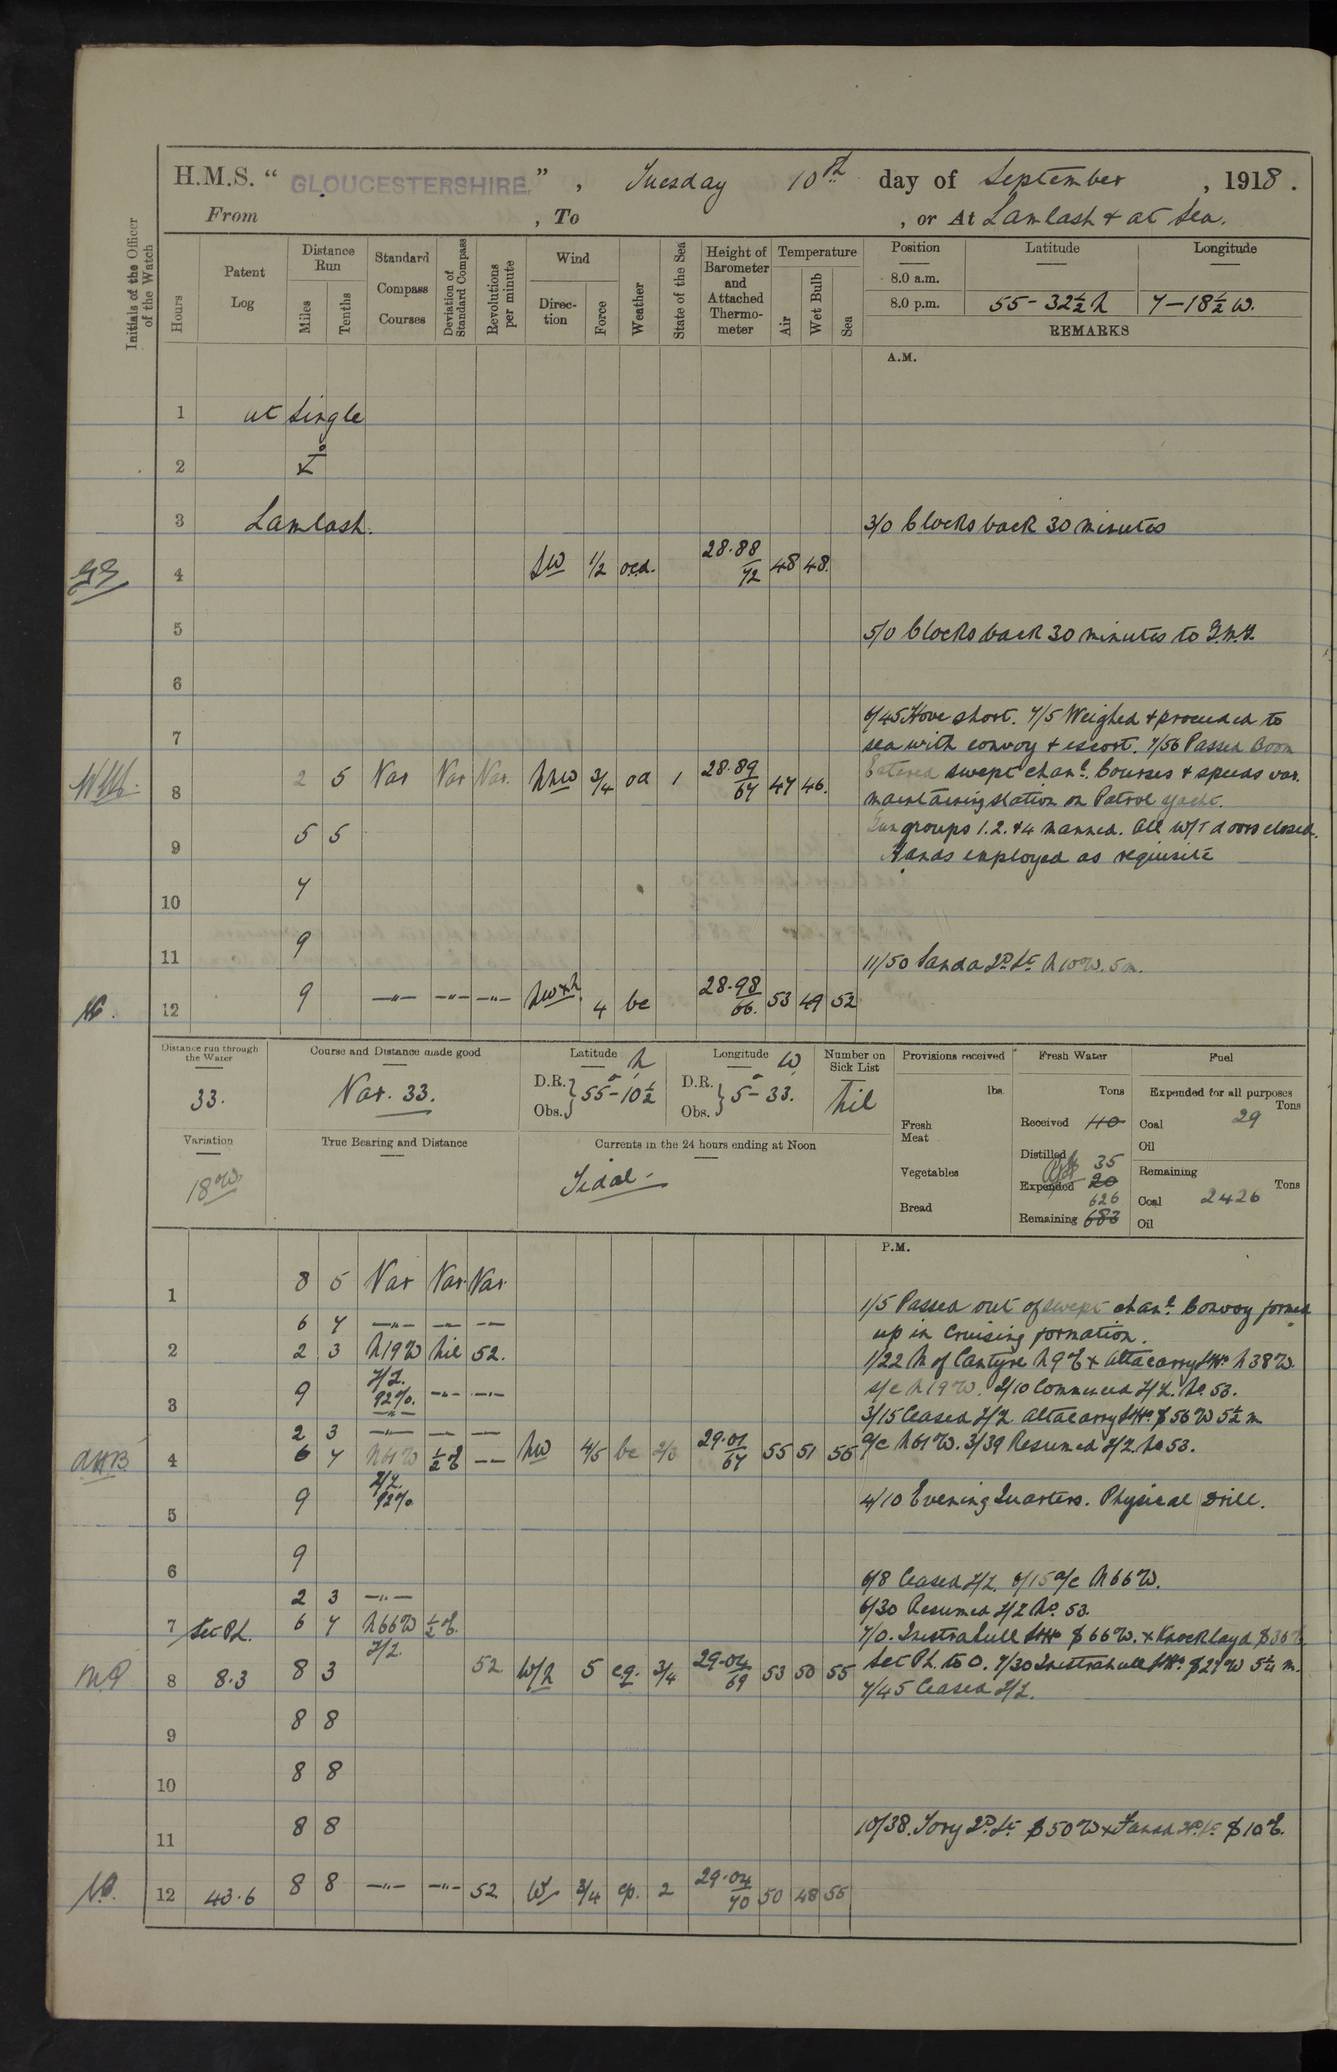 H.M.S. " GLOUCESTERSHIRE. " , Tuesday 10th day of September , 1918 .
From , To , or At Lamlash & at Sea.
Initials of the Officer of the Watch
Hours
Patent Log
Distance Run
Miles
Tenths
Standard Compass Courses
Deviation of Standard Compass
Revolutions per minute
Wind
Direction
Force
Weather
State of the Sea
Height of Barometer and Attached Thermometer
Temperature
Air
Wet Bulb
Sea
Position Latitude Longitude
8.0 a.m.
8.0 p.m. 55-32½ N 7-18½ W.
REMARKS
A.M.
1 at Single
2
3 Lamlash. 3/0 Clocks back 30 minutes
4 SW 1/2 ocd. 28.88 72 48 48.
5 5/0 Clocks back 30 minutes to G.M.T.
6
6/45 Hove short. 7/5 Weighed & proceeded to
7 sea with convoy & escort. 7/56 Passed Boom
8 2 5 Var Var Var. NNW 3/4 od 1 28.89 67 47 46. Entered swept chanl. Courses & speeds var.
maintaining station on Patrol yacht.
9 5 5 Gun groups 1.2.&4 manned. All W/T doors closed.
Hands employed as requisite
10 7
11 9 11/50 Sanda Id Lt N10W. 5m.
12 9 —"— —"— —"— NWxN. 4 bc 28.98 66. 53 49 52
Distance run through the Water
33.
Course and Distance made good
Var. 33.
Latitude N
D.R. Obs. 55-10½
Longitude W
D.R. Obs. 5-33.
Number on Sick List
Nil
Provisions received
lbs.
Fresh Meat
Vegetables
Bread
Fresh Water
Tons
Received 40
Distilled 35
Expended 20
626
Remaining 683
Fuel
Expended for all purposes
Tons
Coal 29
Oil
Remaining
Tons
Coal 2426
Oil
Variation
18°W
True Bearing and Distance
Currents in the 24 hours ending at Noon
Tidal.
P.M.
1 8 5 Var Var. Var. 1/5 Passed out of swept chanl. Convoy formed
6 7 —"— —"— —"— up in Cruising formation.
2 2 3 N19W Nil 52. 1/22 M of Cantyre N9E & Altacarry LtHo N38W.
3 9 Z/Z. 92%. —"— —"— s/c N19W. 2/10 Commenced Z/Z. No 53.
—"— 3/15 Ceased Z/Z. Altacarry LtHo S56W 5½ m
2 3 —"— —"— —"— a/c N61W. 3/39 Resumed Z/Z No 53.
4 6 7 N61W ½E —"— NW 4/5 bc 2/3 29.01 67 55 51 56
5 9 Z/Z. 92% 4/10 Evening Quarters. Physical Drill.
6 9 6/8 Ceased Z/Z. 6/15 a/c N66W.
2 3 —"— 6/30 Resumed Z/Z No 53.
7 Set P.L. 6 7 N66W ½E. 7/0. Inistrahull LtHo S66W. & Knocklayd S36E
Z/Z. Set P.L. to 0. 7/30 Inistrahull LtHo. S27W 5¼ m.
8 8.3 8 3 52 W/N 5 cq. 3/4 29.04 69 53 50 55 7/45 Ceased Z/Z.
9 8 8
10 8 8
11 8 8 10/38. Tory Id Lt S50W & Fanad Hd Lt S10E.
12 43.6 8 8 —"— —"— 52 W 3/4 cp. 2 29.04 70 50 48 55